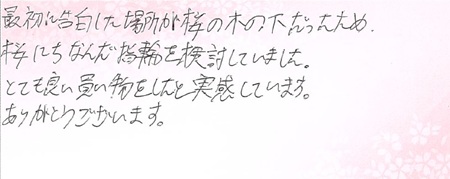 最初に告白した場所が桜の木の下だったため、
桜にちなんだ指輪を検討していました。
とても良い買い物をしたと実感しています。
ありがとうございます。